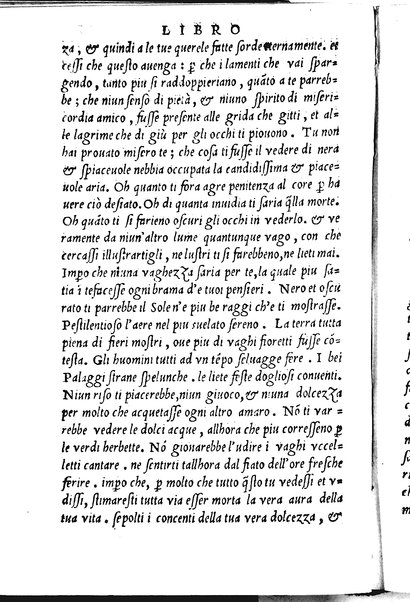 LIBRO
za, & quindi a le tue querele fatte sorde eternamente. et
cessi che questo auenga: ꝑ che i lamenti che vai spar-
gendo, tanto piu si raddoppieriano, quāto a te parreb-
be; che niun senso di pietà, & niuno spirito di miseri-
cordia amico, fusse presente alle grida che gitti, et al-
le lagrime che di giù per gli occhi ti piouono. Tu non
hai prouato misero te; che cosa ti fusse il vedere di nera
& spiaceuole nebbia occupata la candidissima & piace-
uole aria. Oh quanto ti fora agre penitenza al core ꝑ ha
uere ciò desiato. Oh di quanta inuidia ti saria q̃lla morte.
Oh quāto ti si farieno oscuri gli occhi in vederlo. & ve
ramente da niun'altro lume quantunque vago, con che
cercassi illustrartigli, ne lustri ti si farebbeno, ne lieti mai.
Impo che niuna vaghezza saria per te, la quale piu sa-
tia i tefacesse ogni brama d'e tuoi pensieri. Nero et oscu
rato ti parrebbe il Sole n'e piu be raggi ch'e ti mostrasse.
Pestilentioso l'aere nel piu suelato sereno. La terra tutta
piena di fieri mostri, oue piu di vaghi fioretti fusse cō-
testa. Gli huomini tutti ad vn tēpo seluagge fere. I bei
Palaggi strane spelunche. le liete feste dogliosi conuenti.
Niun riso ti piacerebbe, niun giuoco, & niuna dolcezza
per molto che acquetasse ogni altro amaro. Nō ti var
rebbe vedere le dolci acque, allhora che piu corresseno ꝑ
le verdi herbette. Nō gionarebbe l'udire i vaghi vccel-
letti cantare. ne sentirti tallhora dal fiato dell'ore fresche
ferire. impo che, ꝑ molto che tutto q̃sto tu vedessi et v-
dissi, stimaresti tutta via esser morta la vera aura della
tua vita. sepolti i concenti della tua vera dolcezza, &